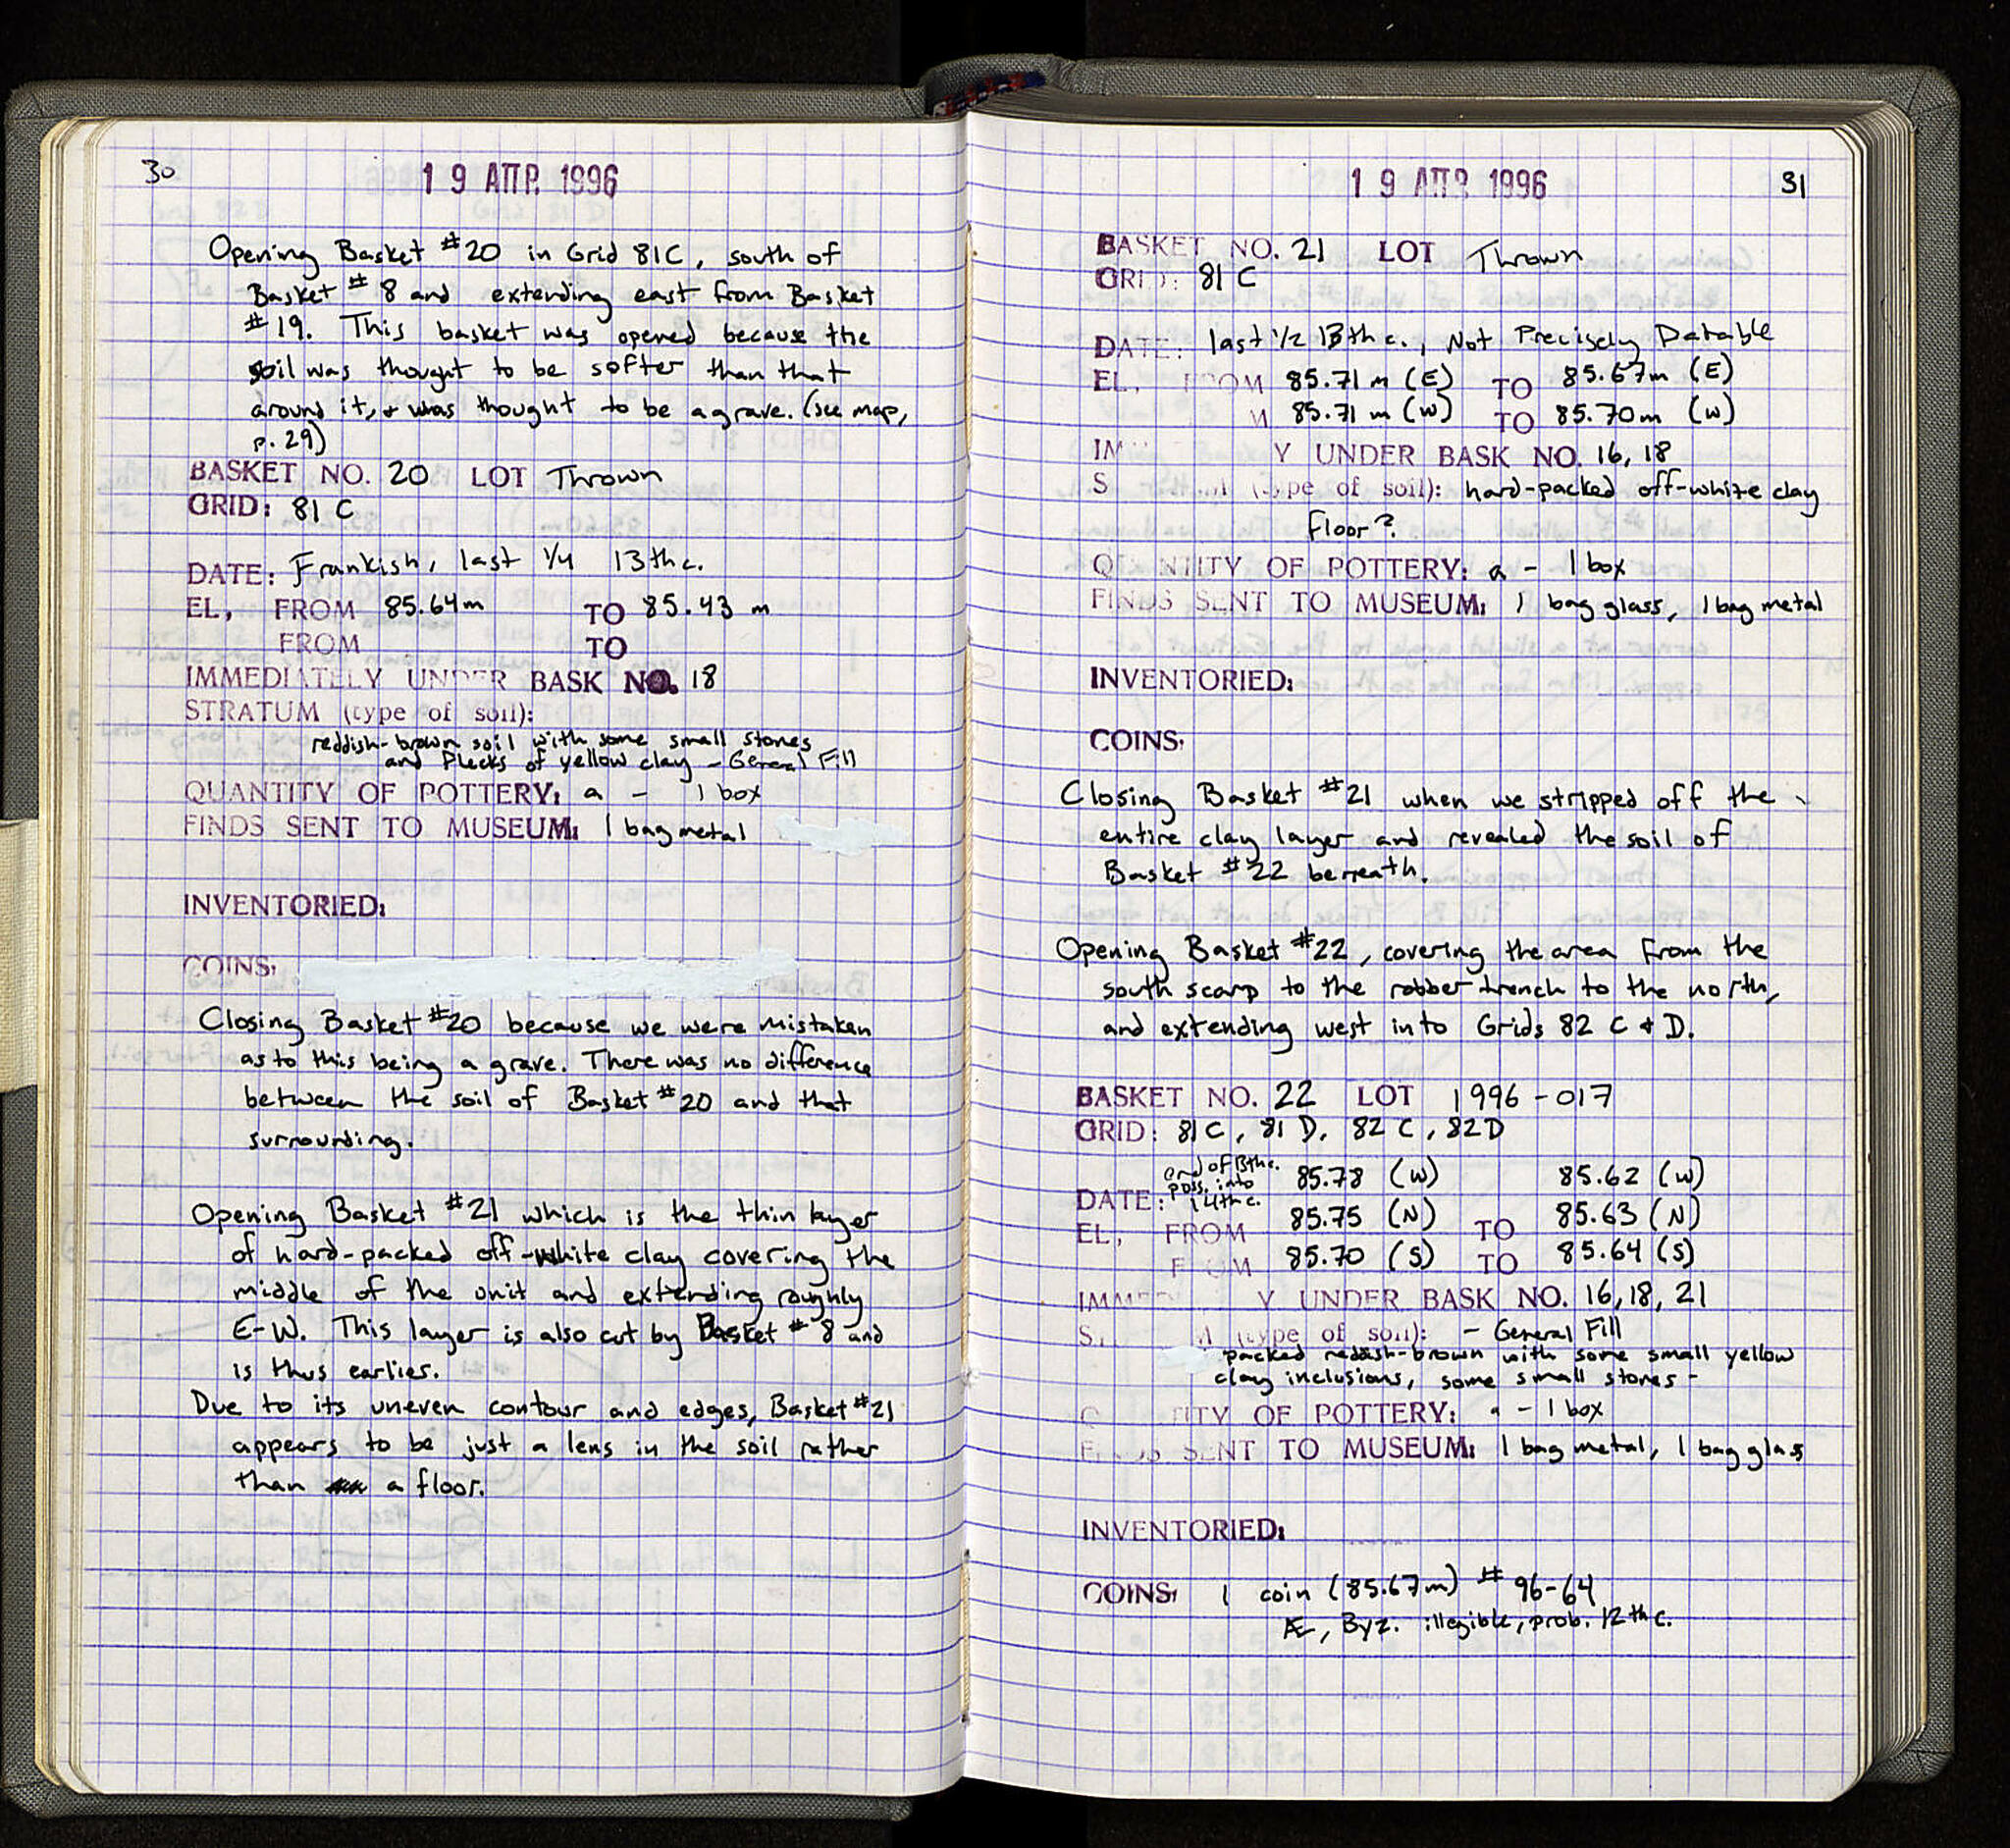 30
19 ΑΠΡ. 1996
Opening Basket #20 in Grid 81C, south of
Basket #8 and extending east from Basket
#19. This basket was opened because the
soil was thought to be softer than that
around it, & was thought to be a grave. (see map,
p. 29)
BASKET NO. 20 LOT Thrown
GRID: 81 C
DATE: Frankish, last 1/4 13th c.
EL, FROM 85.64m TO 85.43 m
FROM TO
IMMEDIATELY UNDER BASK NO. 18
STRATUM (type of soil):
reddish-brown soil with some small stones
and flecks of yellow clay - General Fill
QUANTITY OF POTTERY: a - 1 box
FINDS SENT TO MUSEUM: 1 bag metal
INVENTORIED:
COINS:
Closing Basket #20 because we were mistaken
as to this being a grave. There was no difference
between the soil of Basket #20 and that
surrounding.
Opening Basket #21 which is the thin layer
of hard-packed off-white clay covering the
middle of the unit and extending roughly
E-W. This layer is also cut by Basket #8 and
is thus earlies.
Due to its uneven contour and edges, Basket #21
appears to be just a lens in the soil rather
than a floor.
19 ΑΠΡ 1996
31
BASKET NO. 21 LOT Thrown
GRID: 81 C
DATE: last 1/2 13th c., Not Precisely Datable
EL, FROM 85.71 m (E) TO 85.67m (E)
M 85.71 m (W) TO 85.70m (W)
IM Y UNDER BASK NO. 16, 18
S M (type of soil): hard-packed off-white clay
floor?
QUANTITY OF POTTERY: a - 1 box
FINDS SENT TO MUSEUM: 1 bag glass, 1 bag metal
INVENTORIED:
COINS:
Closing Basket #21 when we stripped off the
entire clay layer and revealed the soil of
Basket #22 beneath.
Opening Basket #22, covering the area from the
south scarp to the robber trench to the north,
and extending west into Grids 82 C & D.
BASKET NO. 22 LOT 1996-017
GRID: 81C, 81 D, 82 C, 82D
end of 13th c. 85.78 (W) 85.62 (W)
DATE: poss. into 14th c.
85.75 (N) 85.63 (N)
EL, FROM TO
FROM 85.70 (S) TO 85.64 (S)
IMMED Y UNDER BASK NO. 16, 18, 21
S M (type of soil): - General Fill
packed reddish-brown with some small yellow
clay inclusions, some small stones -
Q TITY OF POTTERY: a - 1 box
FINDS SENT TO MUSEUM: 1 bag metal, 1 bag glass
INVENTORIED:
COINS: 1 coin (85.67m) # 96-64
Æ, Byz. illegible, prob. 12th c.